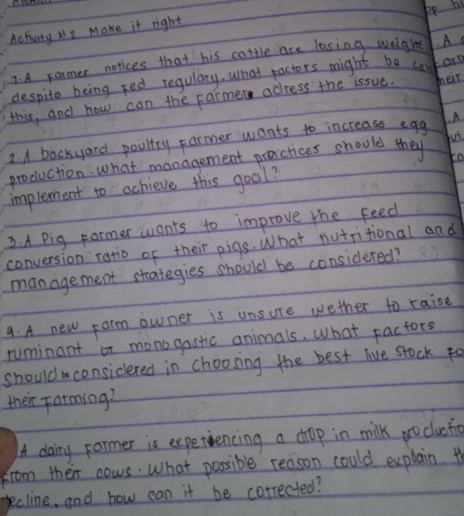 Activity #2 Make it right
1. A Farmer notices that his cattle are losing weight
despite being Fed regulary. What Factors might be
this, and how can the Farmer adress the issue.
2. A backyard poultry Farmer wants to increase egg
production. What management practices should they
implement to achieve this goal?
3. A Pig Farmer wants to improve the Feed
conversion ratio of their pigs. What nutritional and
management strategies should be considered?
4. A new Farm owner is unsure wether to raise
ruminant or monogastic animals. What Factors
should be considered in choosing the best live stock
their Farming?
A dairy Farmer is experiencing a drop in milk
From their cows. What possible reason could explain
and how can it be corrected?